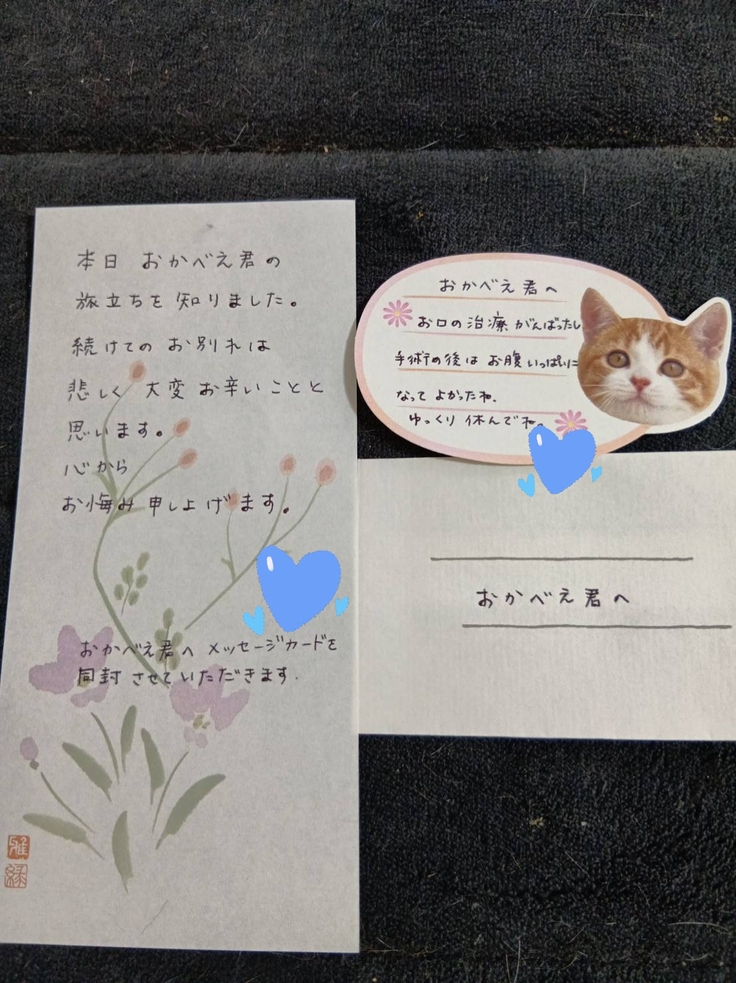 本日 おかべえ君の
旅立ちを 知りました。
続けての お別れは
悲しく 大変 お辛い ことと
思います。
心から
お悔み 申し上げます。
おかべえ君へ メッセージカードを
同封 させていただきます.
おかべえ君へ
お口の治療 がんばったし
手術の後は お腹 いっぱいに
なって よかったね.
ゆっくり 休んでね。
おかべえ君へ
雅
緑